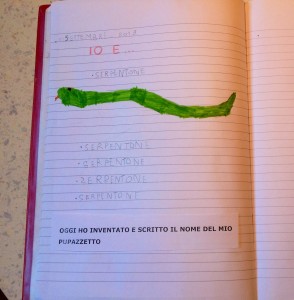 IO E ...
• SERPENTONE
• SERPENTONE
• SERPENTONE
• SERPENTONE
• SERPENTONE
OGGI HO INVENTATO E SCRITTO IL NOME DEL MIO
PUPAZZETTO